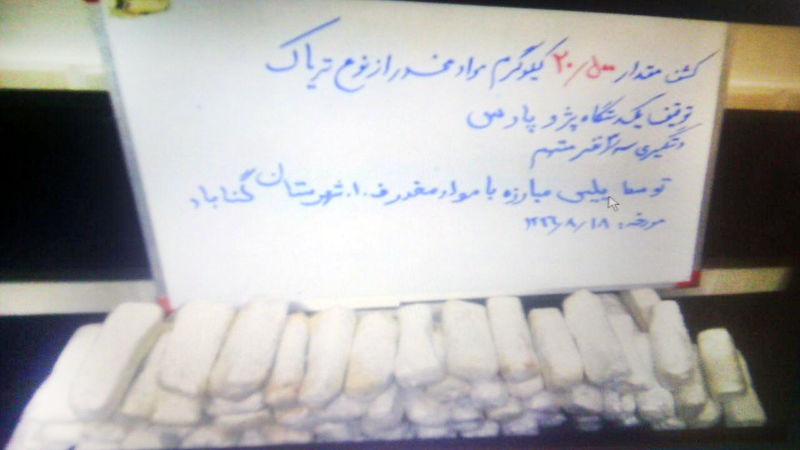 کشف مقدار ۲۰/۵۰۰ کیلوگرم مواد مخدر از نوع تریاک
توقیف یکدستگاه پژو پارس
دستگیری سه نفر متهم
توسط پلیس مبارزه با مواد مخدر ف.ا. شهرستان گناباد
مورخه: ۱۸/۸/